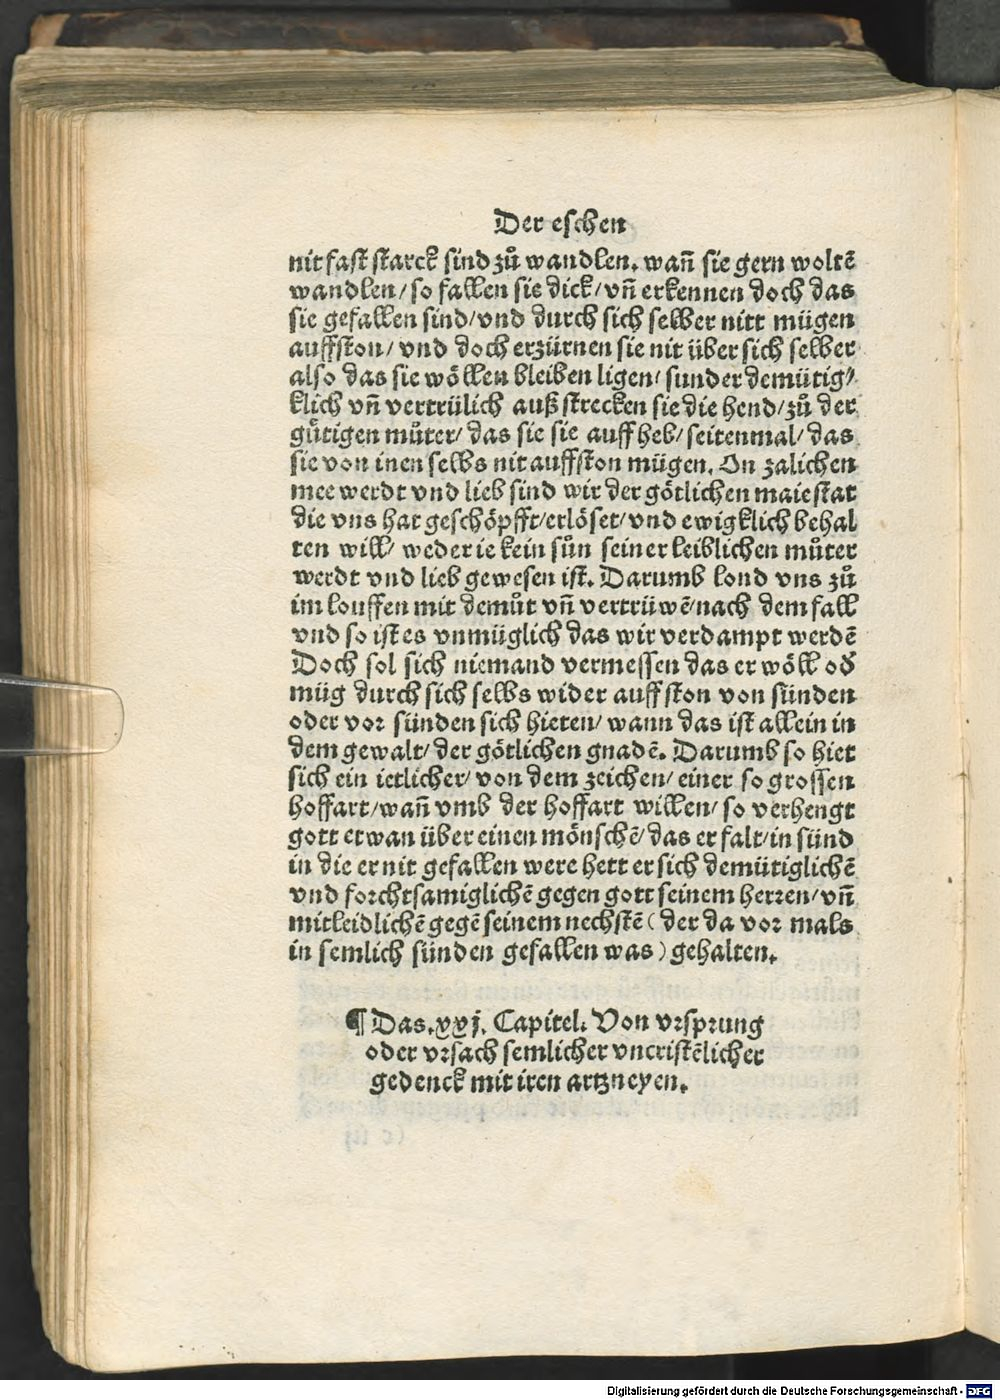 Der eschen
nit fast starck sind zů wandlen. wañ sie gern woltē
wandlen/ so fallen sie dick/ vñ erkennen doch das
sie gefallen sind/ vnd durch sich selber nitt mügen
auffston/ vnd doch erzürnen sie nit über sich selber
also das sie wöllen bleiben ligen/ sunder demütig⸗
klich vñ vertrülich außstrecken sie die hend/ zů der
gütigen můter/ das sie sie auff heb/ seitenmal/ das
sie von inen selbs nit auffston mügen. On zalichen
mee werdt vnd lieb sind wir der götlichen maiestat
die vns hat geschöpfft/ erlöset/ vnd ewigklich behal
ten will/ weder ie kein sůn seiner leiblichen můter
werdt vnd lieb gewesen ist. Darumb lond vns zů
im louffen mit demůt vñ vertrüwē/ nach dem fall
vnd so ist es vnmüglich das wir verdampt werdē
Doch sol sich niemand vermessen das er wöll od̕
müg durch sich selbs wider auffston von sünden
oder vor sünden sich hieten/ wann das ist allein in
dem gewalt/ der götlichen gnadē. Darumb so hiet
sich ein ietlicher/ von dem zeichen/ einer so grossen
hoffart/ wañ vmb der hoffart willen/ so verhengt
gott etwan über einen mönschē/ das er falt/ in sünd
in die er nit gefallen were hett er sich demütiglichē
vnd forchtsamiglichē gegen gott seinem herren/ vñ
mitleidlichē gegē seinem nechstē ( der da vor mals
in semlich sünden gefallen was ) gehalten.
¶ Das. xxj. Capitel. Von vrsprung
oder vrsach semlicher vncristēlicher
gedenck mit iren artzneyen.
Digitalisierung gefördert durch die Deutsche Forschungsgemeinschaft - DFG